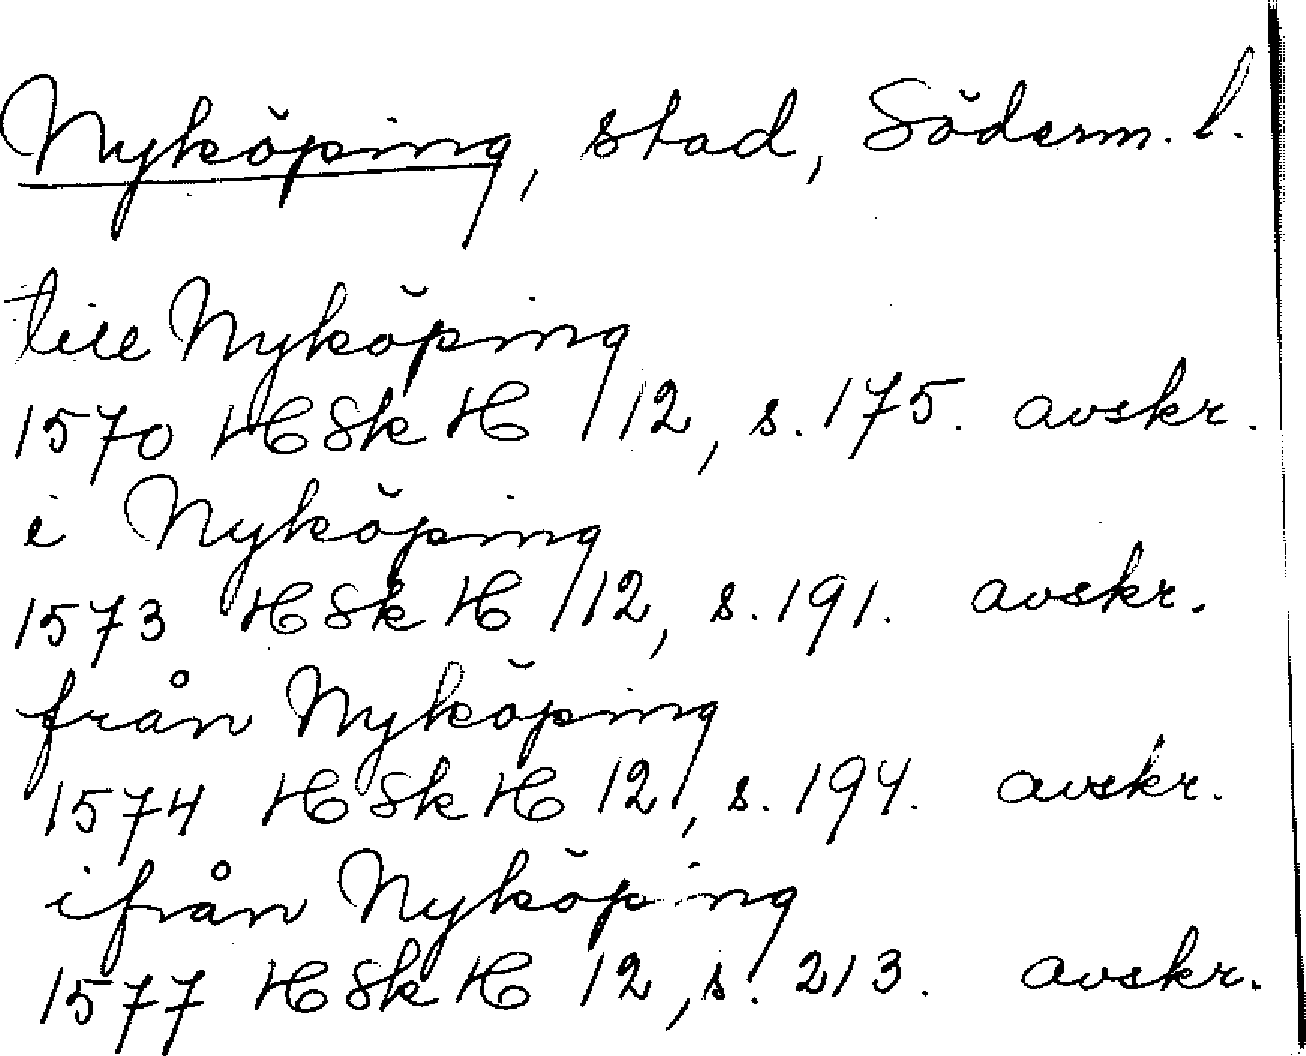 Nyköping, stad, Söderm. l.
till Nyköping
1570 HSk H 12, s. 175. avskr.
i Nyköping
1573 HSk H 12, s. 191. avskr.
från Nyköping
1574 HSk H 12, s. 194. avskr.
ifrån Nyköping
1577 HSk H 12, s. 213. avskr.